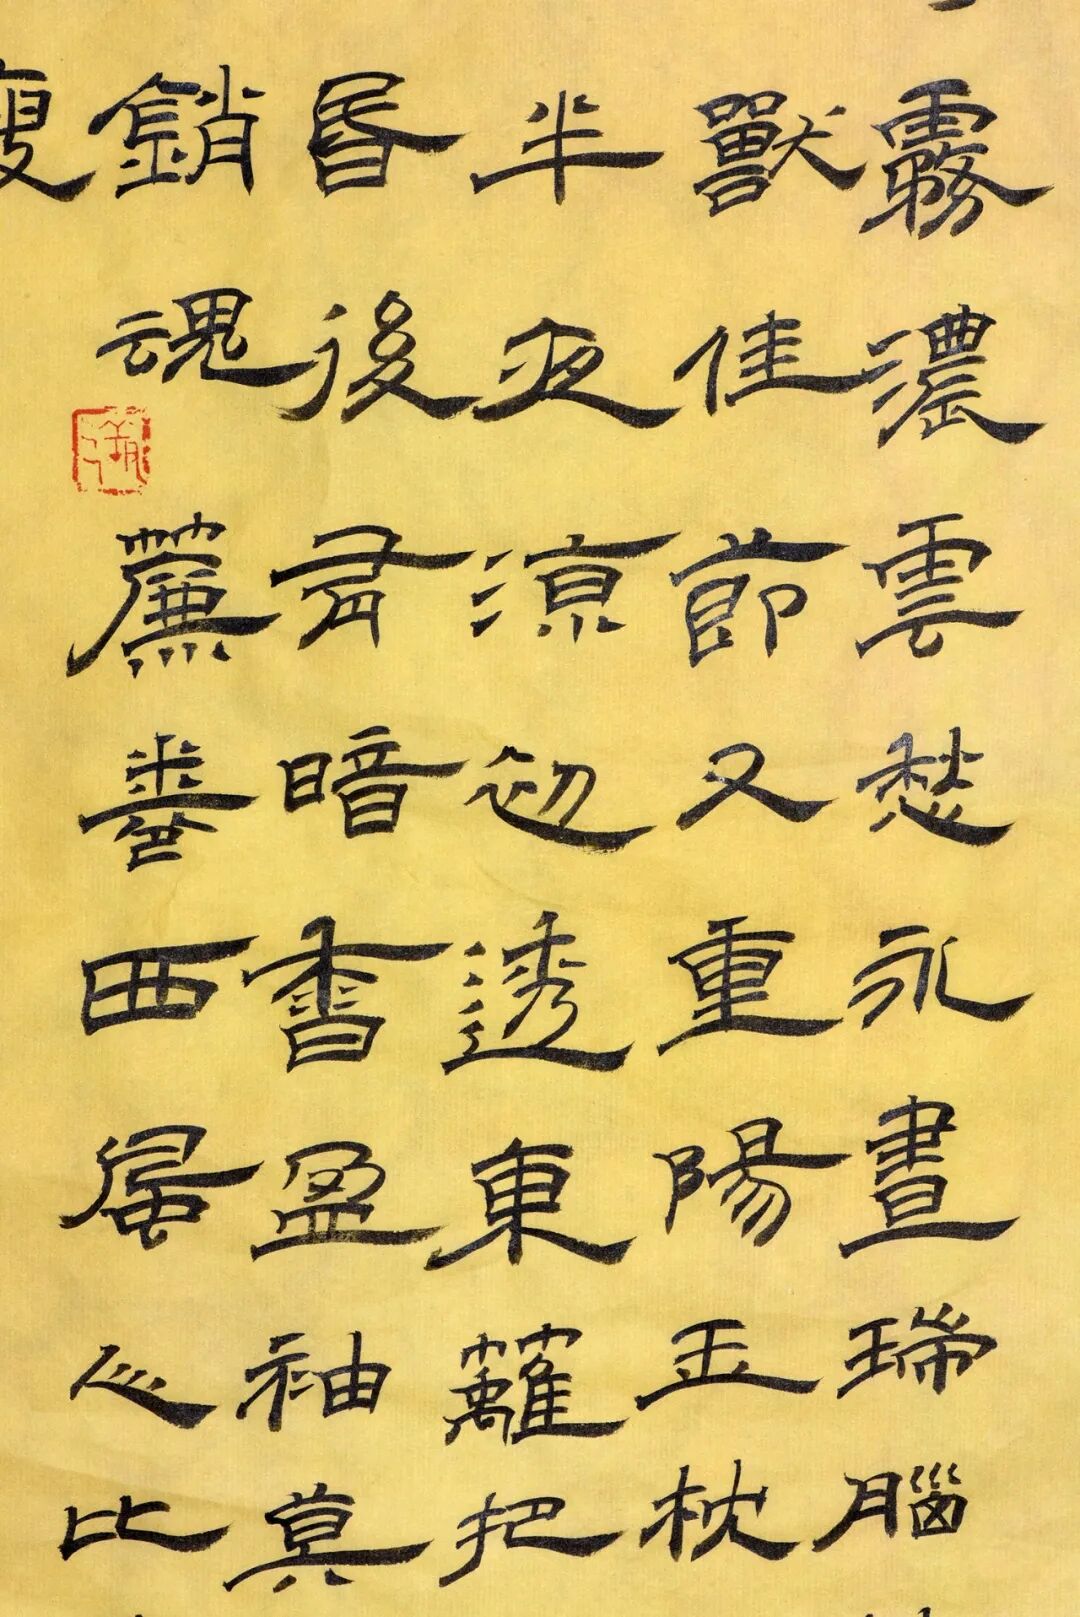 霧濃雲愁永晝瑞腦
獸佳節又重陽玉枕
半夜涼初透東籬把
昏後有暗香盈袖莫
銷魂簾卷西風人比
瘦